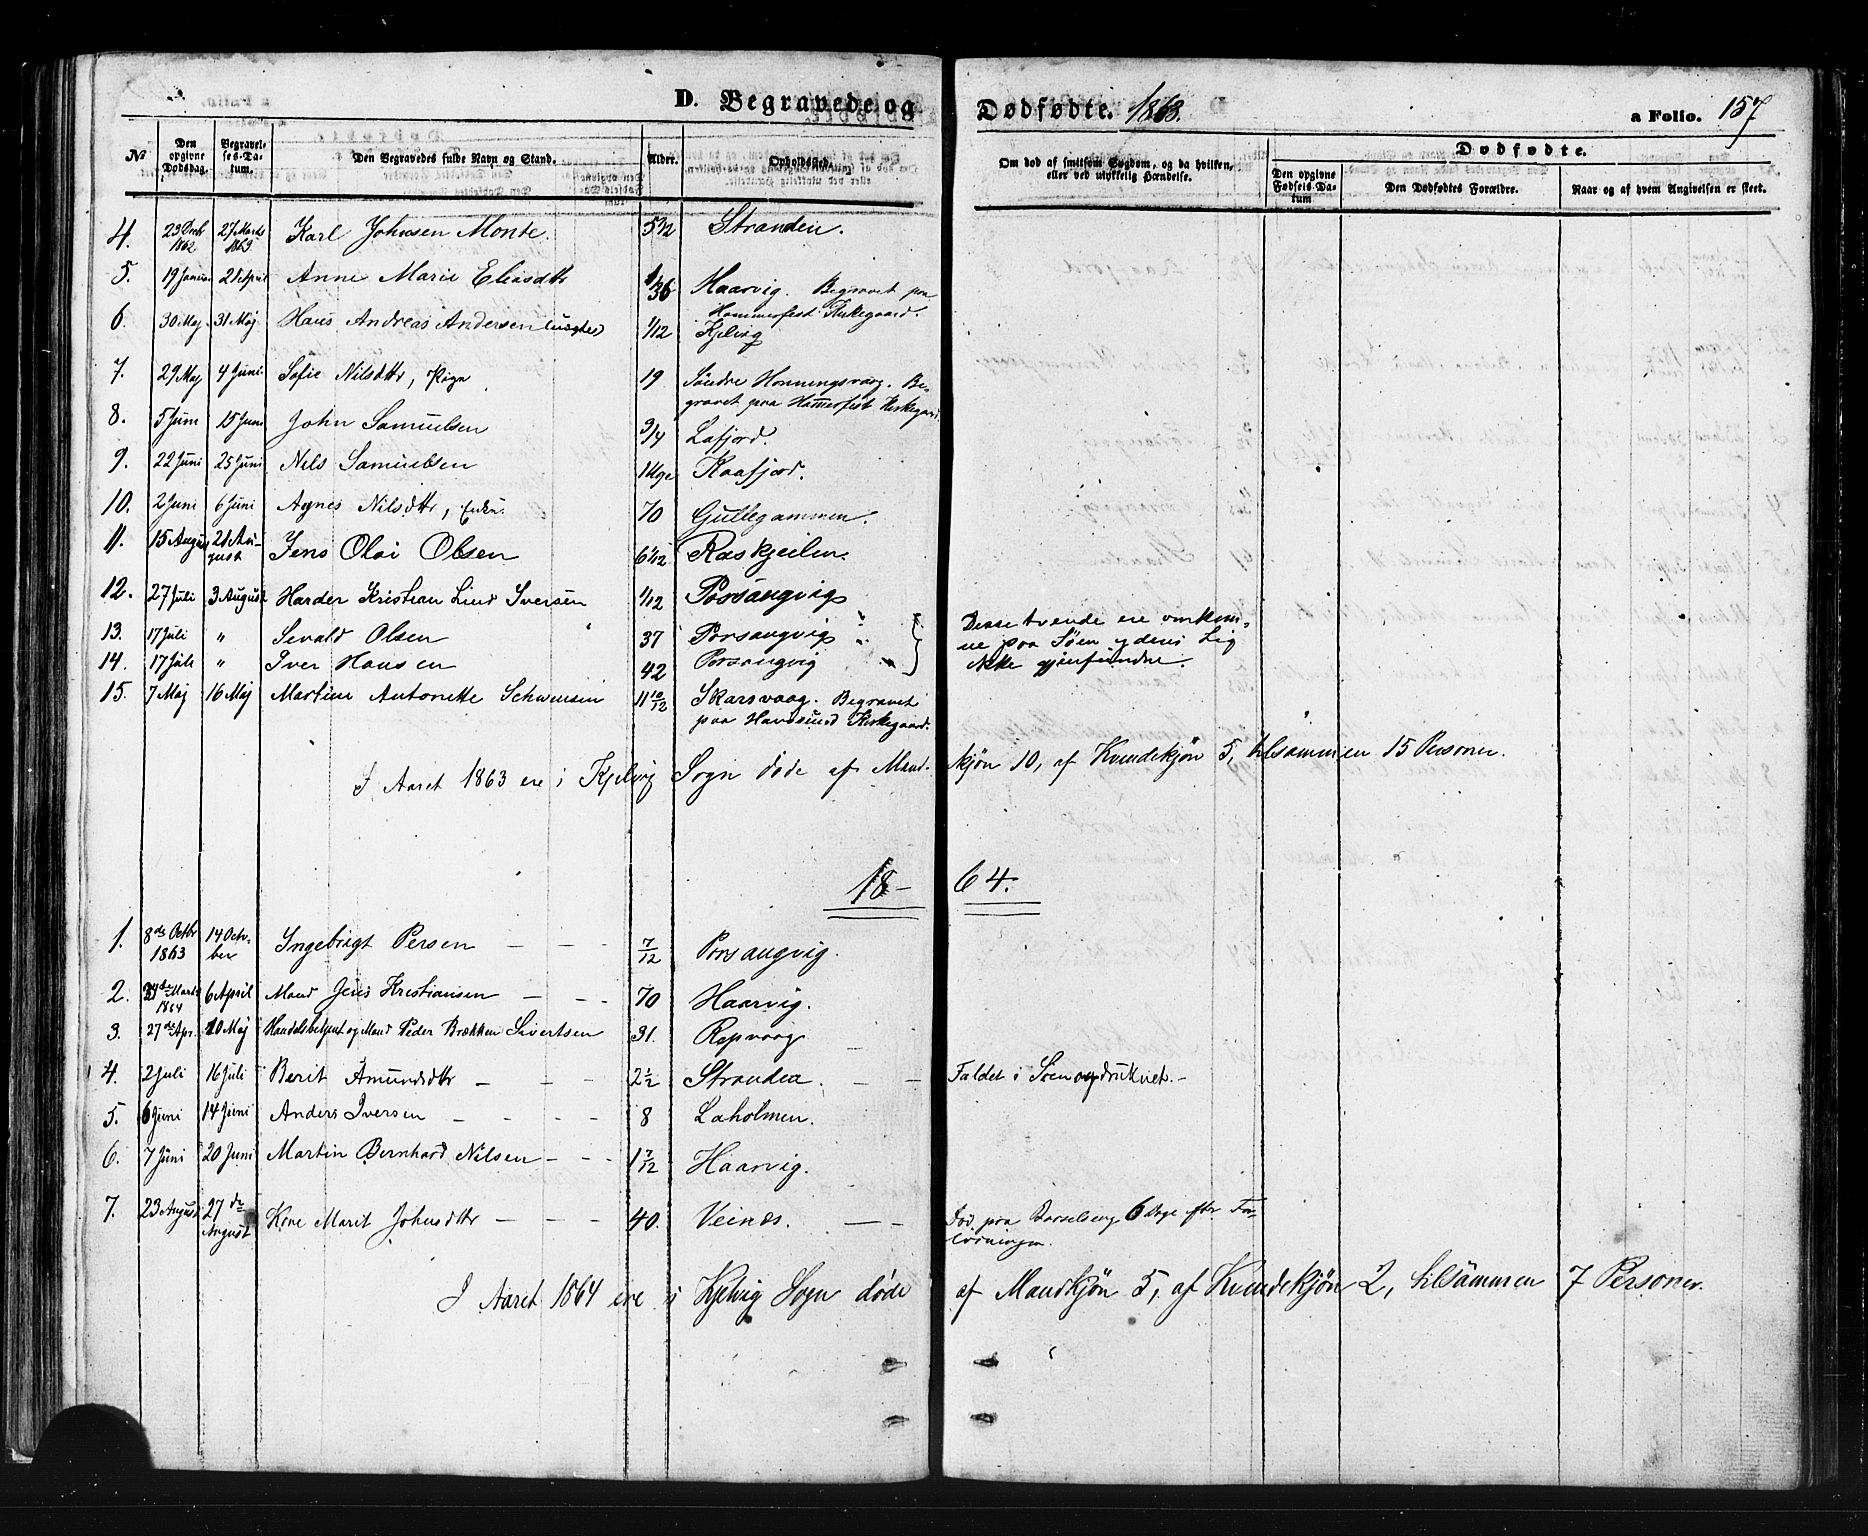 D. Begravede og Dødfødte. 1863. a Folio. 157
№ Den opgivne Dødsdag. Begravelses-Datum. Den Begravedes fulde Navn og Stand. Alder. Opholdssted. Om død af smitsom Sygdom, og da hvilken, eller ved ulykkelig Hændelse. Dødfødte. Den opgivne Fødsels-Datum Den Dødfødtes Forældre. Naar og af hvem Angivelsen er skeet.
4. 23 Decb 1862 27 Marts 1863 Karl Johnsen Monte. 5/12 Stranden.
5. 19 Januar 21 April Anne Marie Eliasdttr 36 Haarvig. Begravet paa
Hammerfest Kirkegaard.
6. 30 Maj 31 Maj Hans Andreas Andersen (uægte) 1/12 Kjelvig
7. 29 Maj 4 Juni Sofie Nilsdttr, Pige 19 Søndre Honningsvaag. Be-
gravet paa Hamerfest Kirkegaard.
8. 5 Juni 15 Juni John Samuelsen 3/4 Lafjord.
9. 22 Juni 25 Juni Nils Samuelsen 1 Uge Kaafjord.
10. 2 Juni 6 Juni Agnes Nilsdttr, Enke. 70 Gullegammen.
11. 15 August 21 Au-
gust Jens Olai Olsen 6 1/12 Raskjeilen.
12. 27 Juli 3 August Harder Kristian Lind Iversen 1/12 Porsangvig
13. 17 Juli " Sevald Olsen 37 Porsangvig " Desse tvende ere omkom-
ne paa Søen og deres Lig
ikke gjenfundne.
14. 17 Juli " Iver Hansen 42 Porsangvig "
15. 7 Maj 16 Maj Martine Antonette Schwensen 11 10/12 Skarsvaag. Begravet
paa Havøsund Kirkegaard.
I Aaret 1863 ere i Kjelvig Sogn døde af Mand-kjøn 10, af Kvindekjøn 5, tilsammen 15 Personer.
18-64.
1. 8de Octbr 1863 14 Octo-
ber Ingebrigt Persen - - - 7/12 Porsangvig.
2. Marts 1864 6 April Mand Jens Kristiansen - - - 70 Haarvig.
3. 27de Apr. 20 Maj Handelsbetjent og Mand Peder Brækken Sivertsen 31. Repvaag
4. 2 Juli 16 Juli Berit Amundsdttr - - - 2 1/2 Stranden. - - Faldet i Søen og druknet. -
5. 6 Juni 14 Juni Anders Iversen - - - - 8 Laholmen.
6. 7 Juni 20 Juni Martin Bernhard Nilsen - - - 1 7/12 Haarvig.
7. 23 August 27de August Kone Marit Johnsdttr - - - 40. Veines. - - Død paa Barselseng 6 Dage efter For-
løsningen.
I Aaret 1864 ere i Kjelvig Sogn døde af Mandkjøn 5, af Kvindekjøn 2, tilsammen 7 Personer.